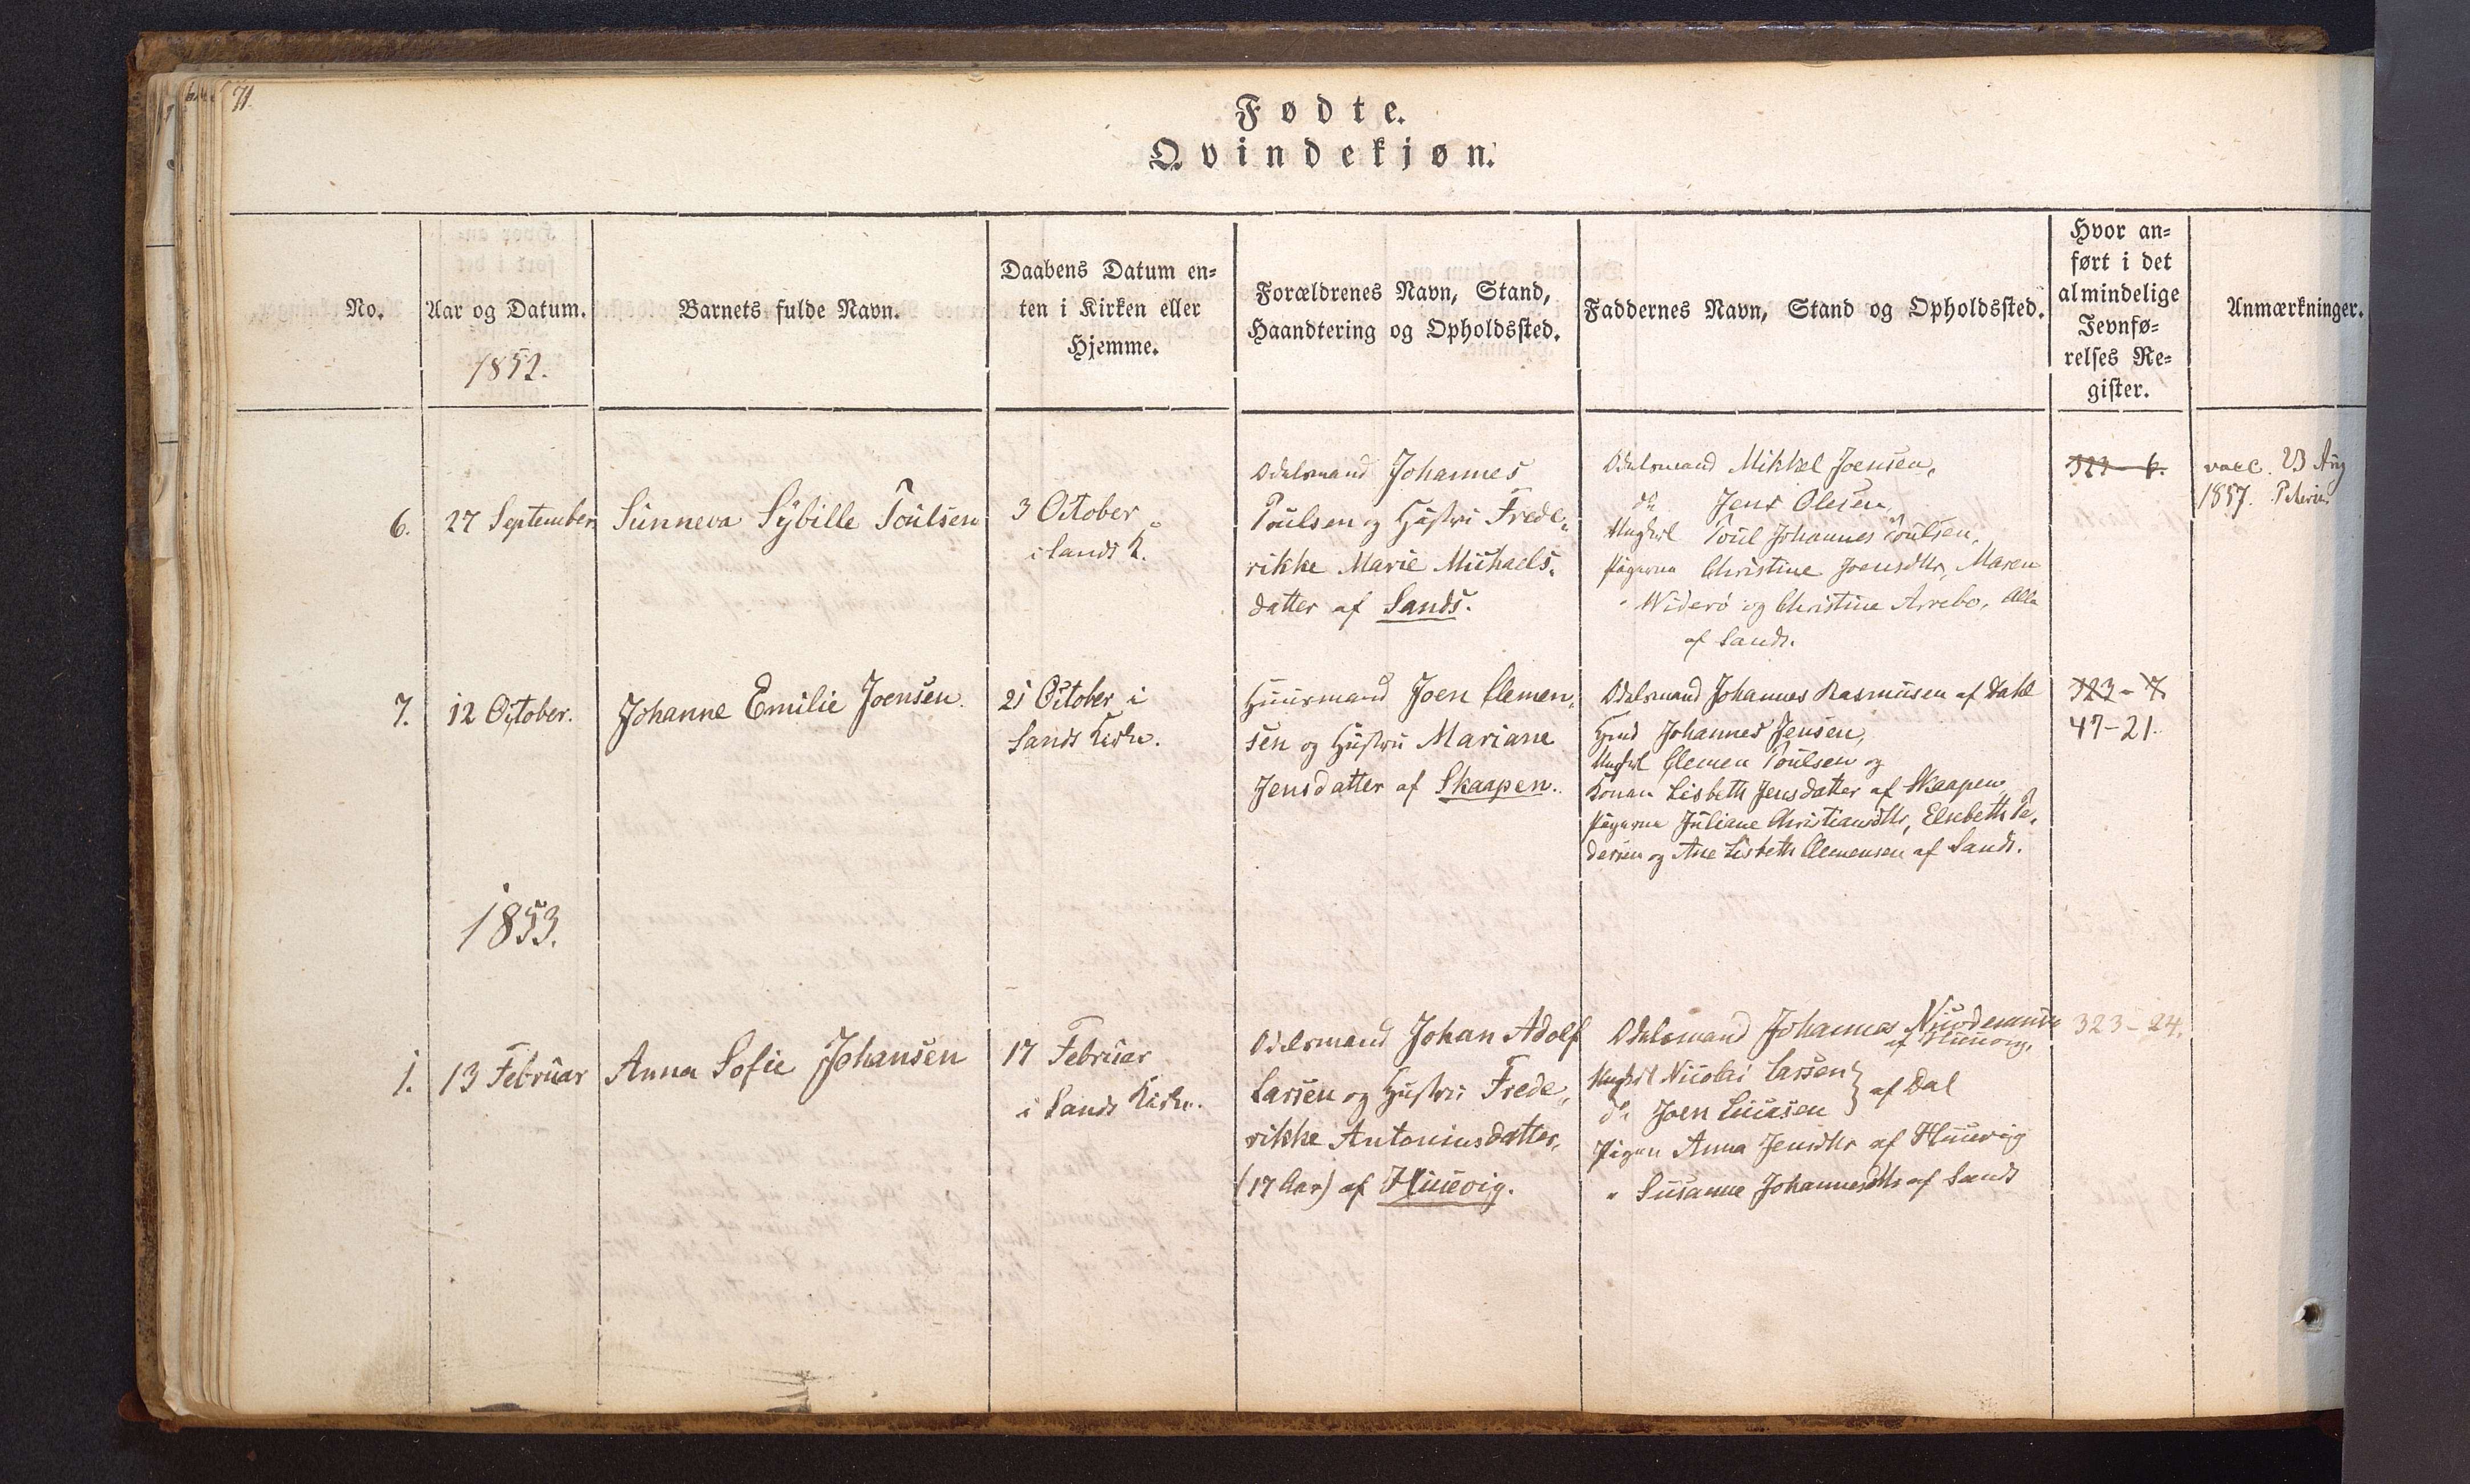 71.
Fødte.
Qvindekjøn.
No.
Aar og Datum.
1852.
Barnets fulde Navn.
Daabens Datum en=
ten i Kirken eller
Hjemme.
Forældrenes Navn, Stand,
Haandtering og Opholdssted.
Faddernes Navn, Stand og Opholdssted.
Hvor an=
ført i det
almindelige
Jevnfø=
relses Re=
gister.
Anmærkninger.
6.
27 September
Sunneva Sybille Poulsen
3 October
i Sands K.
Odelsmand Johannes
Poulsen og Hustru Frede,
rikke Marie Michaels,
datter af Sands.
Odelsmand Mikkel Joensen,
do Jens Olesen,
Ungkrl Poul Johannes Poulsen,
Pigerne Christine Joensdtr, Maren
" Widerö og Christine Arrebo, Alle
af Sands.
323-6.
vacc. 23 Aug
1857.
7.
12 October.
Johanne Emilie Joensen.
21 October i
Sands Kirke.
Huusmand Joen Clemen,
sen og Hustru Mariane
Jensdatter af Skaapen.
Odelsmand Johannes Rasmusen af Dahl
Johannes Jensen,
Ungkrl Clemen Poulsen og
Konen Lisbeth Jensdatter af Skaapen
Pigerne Juliane Christiansdtr, Elsebeth Pe,
dersen og Ane Lisbeth Clemensen af Sands.
323-7.
47-21.
1853.
1.
13 Februar
Anna Sofie Johansen
17 Februar
i Sands Kirke.
Odelsmand Johan Adolf
Larsen og Hustru Frede,
rikke Antoniusdatter,
(17 Aar) af Huusvig.
Odelsmand Johannes
af Huusvig,
Ungkrl Nicolai Larsen } af Dal
do Joen Lucasen
Pigen Anna Jensdtr af Huusvig
" Susanne Johannesdtr af Sands
323-24.